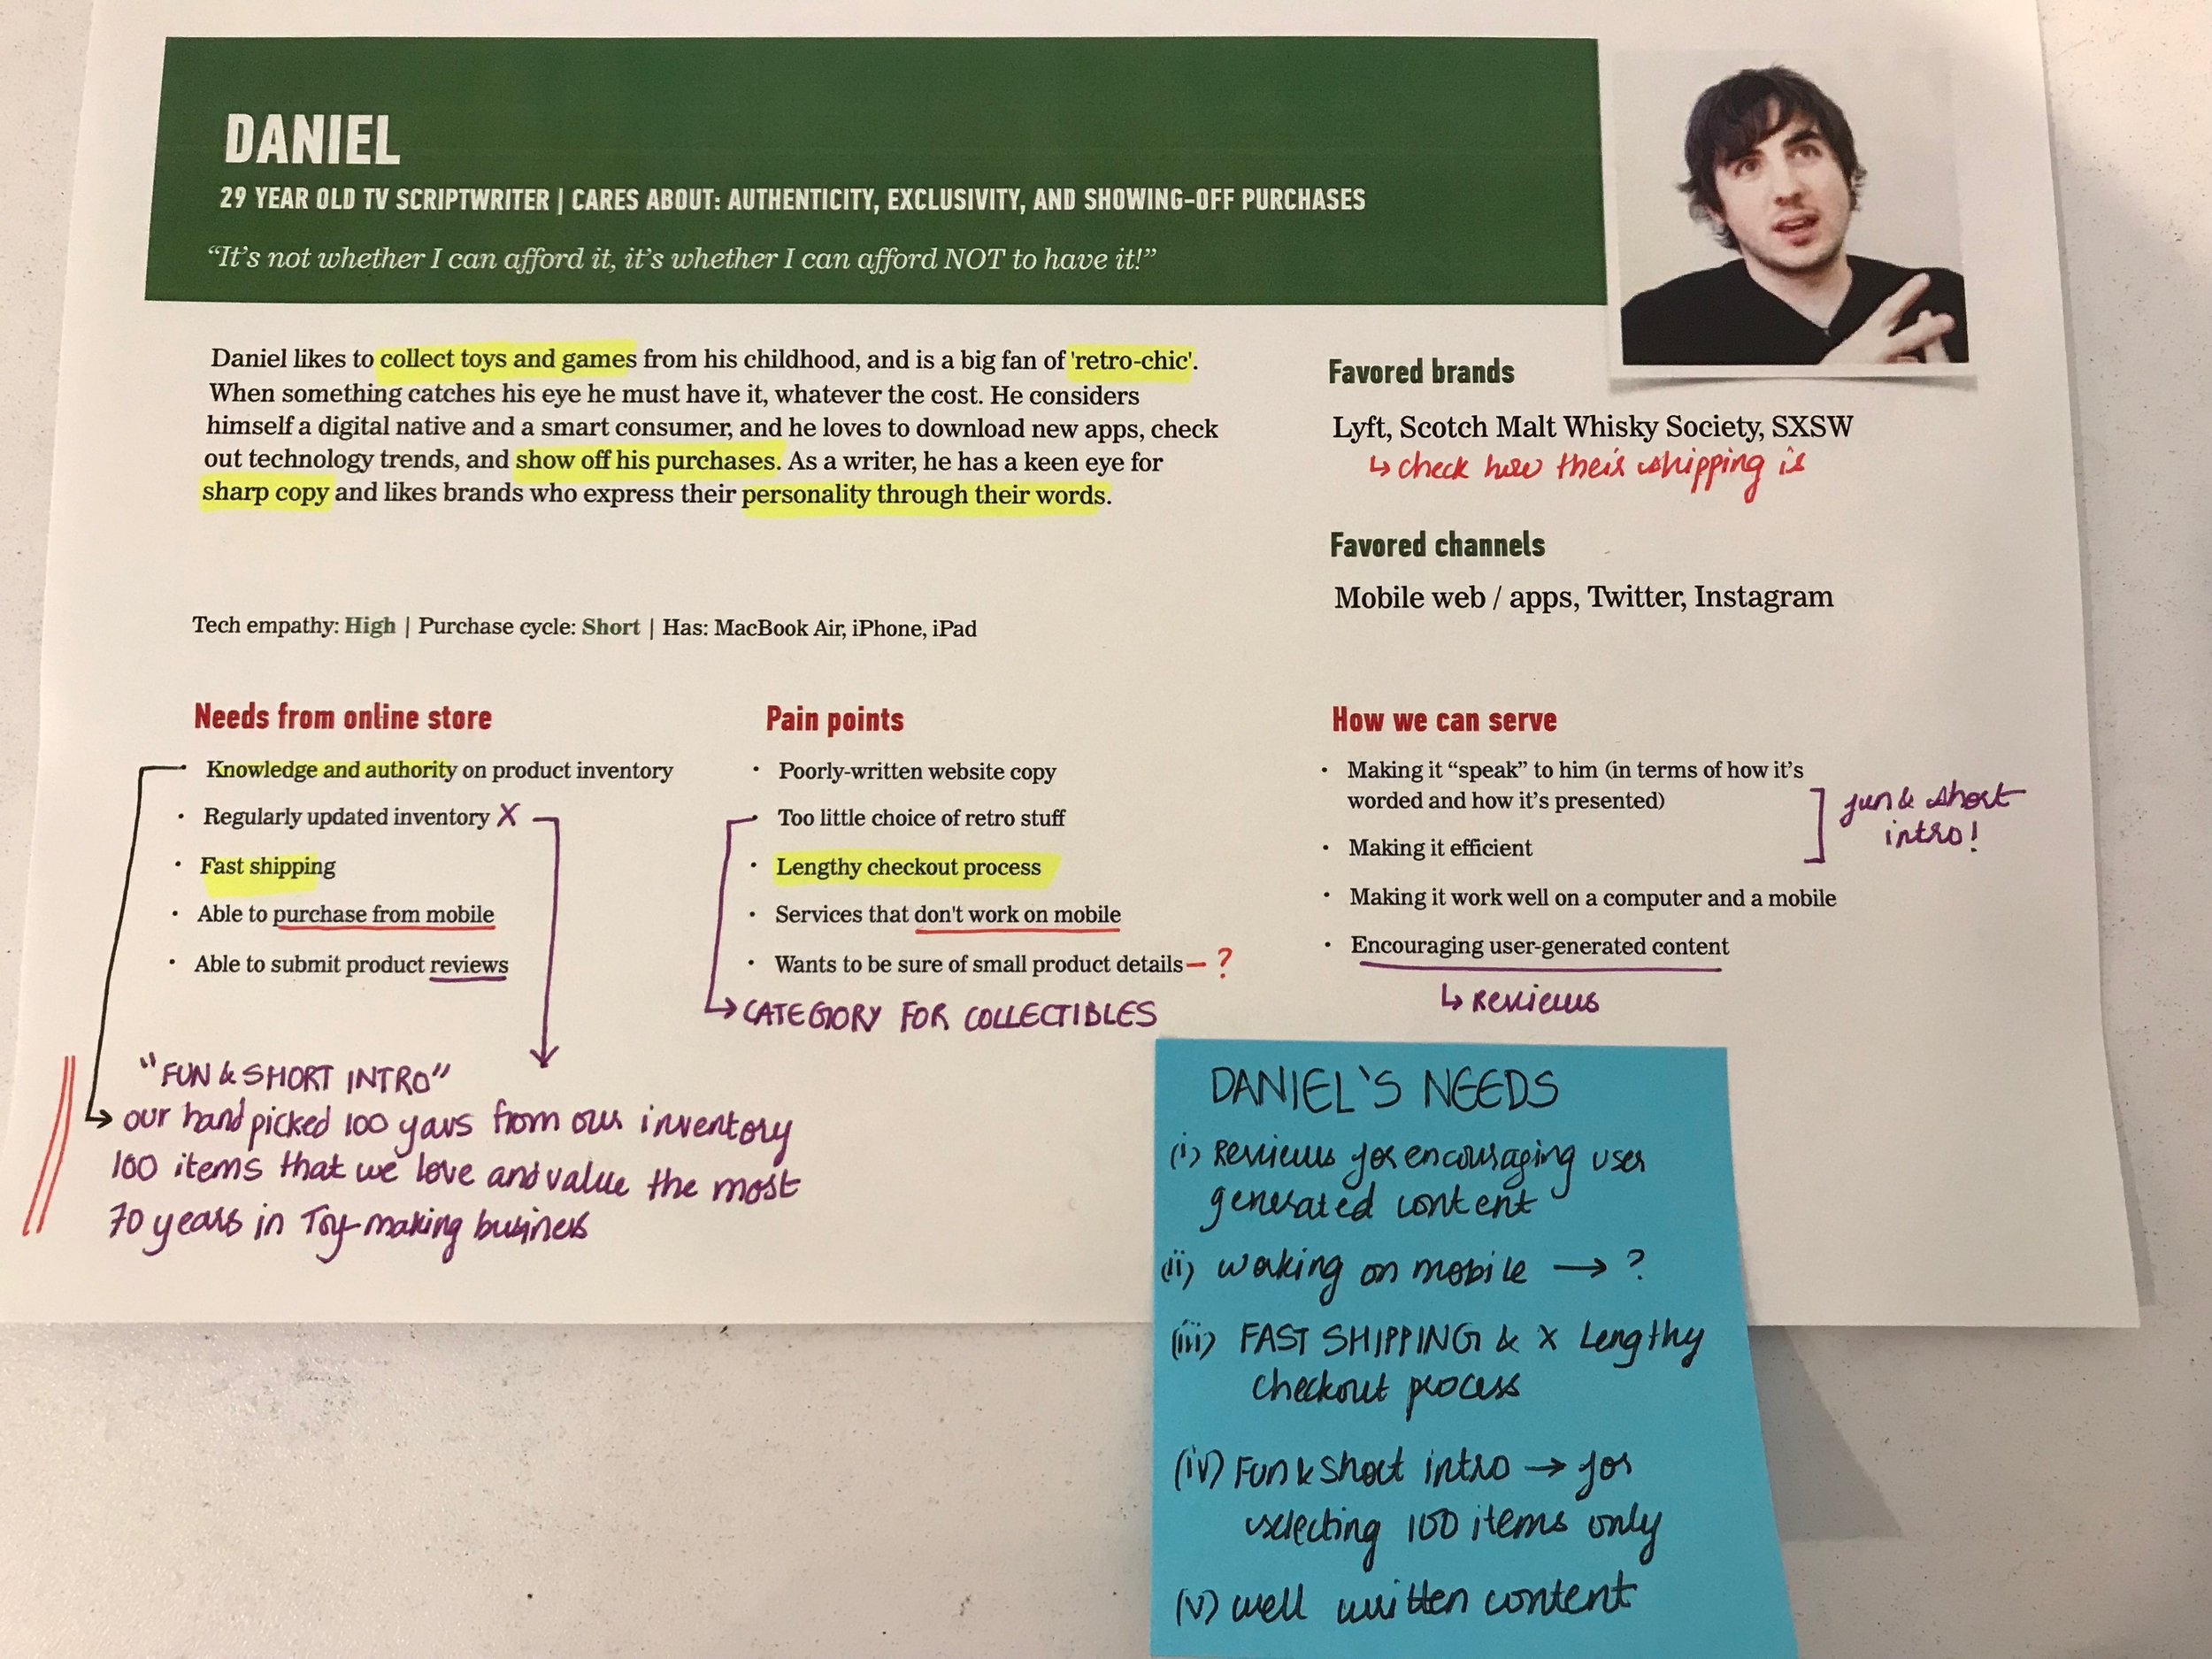 DANIEL
29 YEAR OLD TV SCRIPTWRITER | CARES ABOUT: AUTHENTICITY, EXCLUSIVITY, AND SHOWING-OFF PURCHASES
“It’s not whether I can afford it, it’s whether I can afford NOT to have it!”
Daniel likes to collect toys and games from his childhood, and is a big fan of 'retro-chic'.
When something catches his eye he must have it, whatever the cost. He considers
himself a digital native and a smart consumer, and he loves to download new apps, check
out technology trends, and show off his purchases. As a writer, he has a keen eye for
sharp copy and likes brands who express their personality through their words.
Tech empathy: High | Purchase cycle: Short | Has: MacBook Air, iPhone, iPad
Favored brands
Lyft, Scotch Malt Whisky Society, SXSW
↳ check how their shipping is
Favored channels
Mobile web / apps, Twitter, Instagram
Needs from online store
• Knowledge and authority on product inventory
• Regularly updated inventory X
• Fast shipping
• Able to purchase from mobile
• Able to submit product reviews
Pain points
• Poorly-written website copy
• Too little choice of retro stuff
• Lengthy checkout process
• Services that don't work on mobile
• Wants to be sure of small product details - ?
→ CATEGORY FOR COLLECTIBLES
How we can serve
• Making it “speak” to him (in terms of how it’s
worded and how it’s presented)
• Making it efficient
• Making it work well on a computer and a mobile
• Encouraging user-generated content
fun & short
intro!
↳ Reviews
"FUN & SHORT INTRO"
→ our hand picked 100 yavs from our inventory
100 items that we love and value the most
70 years in Toy-making business
DANIEL'S NEEDS
(i) Reviews for encouraging user
generated content
(ii) working on mobile → ?
(iii) FAST SHIPPING & X Lengthy
checkout process
(iv) Fun & Short intro → for
selecting 100 items only
(v) well written content